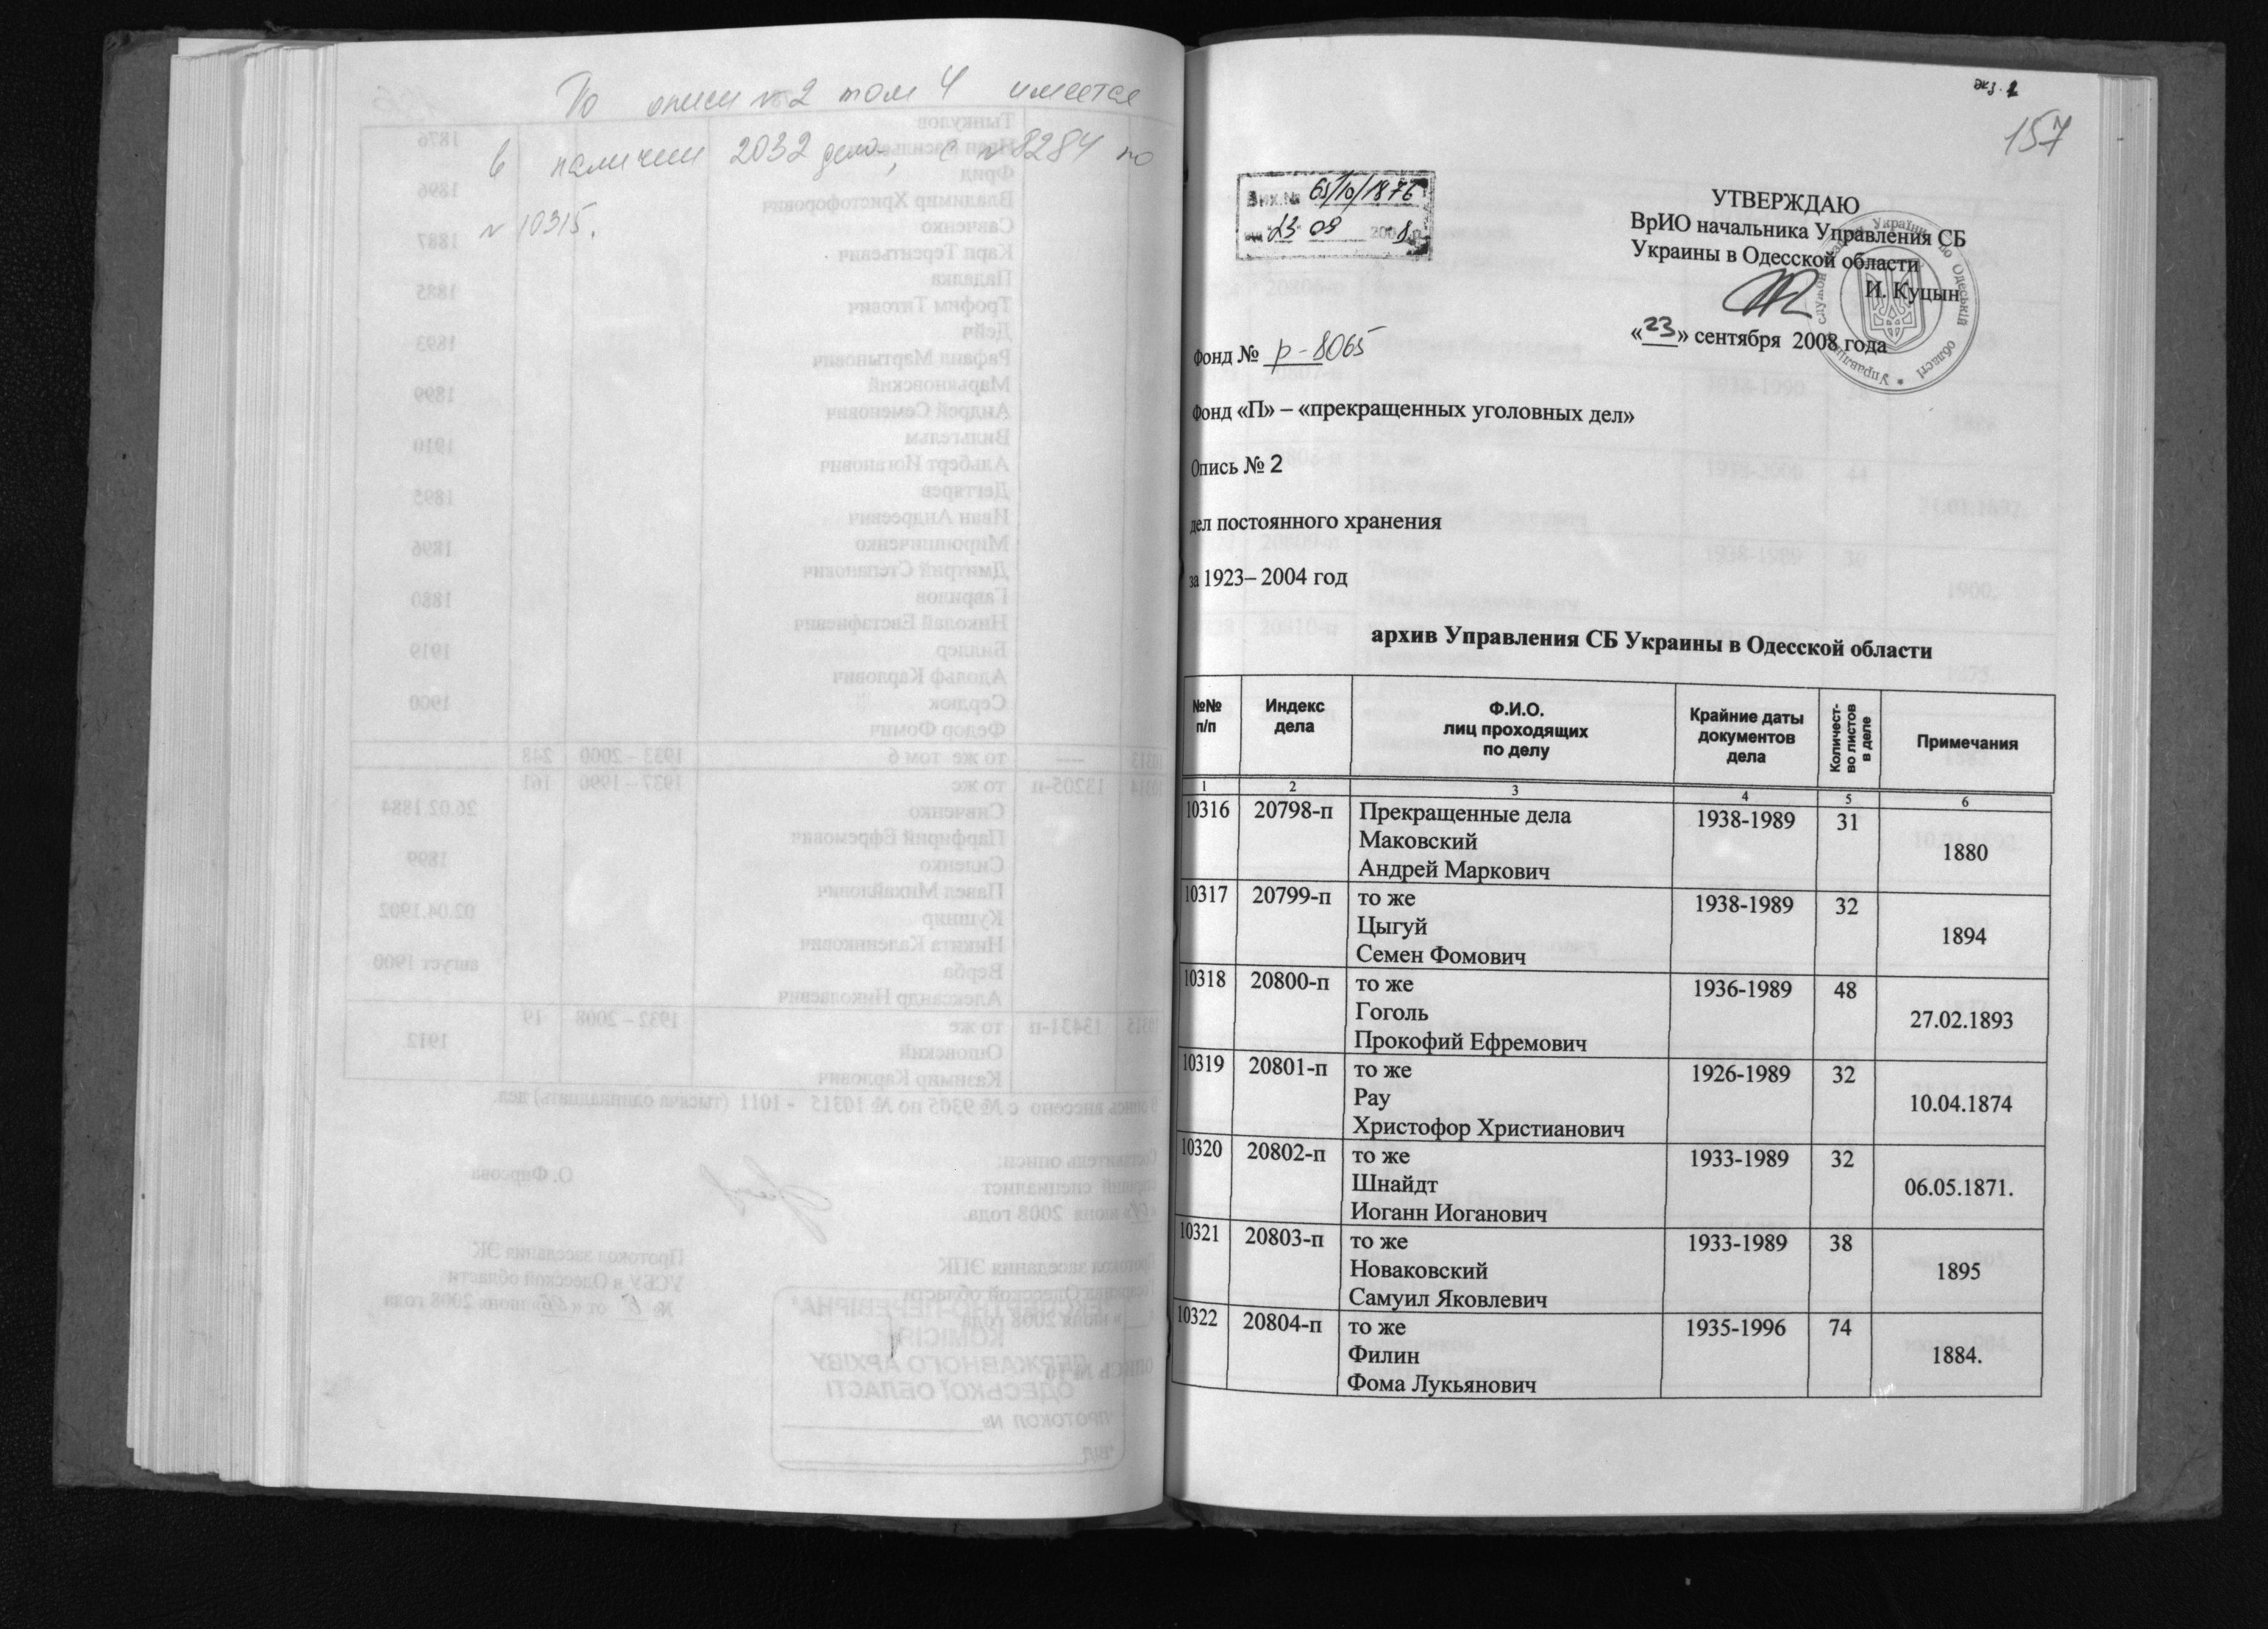 По описи № 2 том 4 имеется
в наличии 2032 дела, с № 8284 по
№ 10315.
экз. 1
157
Вих.№ 65/10/1876
23 09 2008 р.
УТВЕРЖДАЮ
ВрИО начальника Управления СБ
Украины в Одесской области
И. Куцын
«23» сентября 2008 года
Фонд № р-8065
Фонд «П» – «прекращенных уголовных дел»
Опись № 2
дел постоянного хранения
за 1923– 2004 год
архив Управления СБ Украины в Одесской области
№№ п/п Индекс дела Ф.И.О. лиц проходящих по делу Крайние даты документов дела Количест-во листов в деле Примечания
1 2 3 4 5 6
10316 20798-п Прекращенные дела 1938-1989 31
Маковский 1880
Андрей Маркович
10317 20799-п то же 1938-1989 32
Цыгуй 1894
Семен Фомович
10318 20800-п то же 1936-1989 48
Гоголь 27.02.1893
Прокофий Ефремович
10319 20801-п то же 1926-1989 32
Рау 10.04.1874
Христофор Христианович
10320 20802-п то же 1933-1989 32
Шнайдт 06.05.1871.
Иоганн Иоганович
10321 20803-п то же 1933-1989 38
Новаковский 1895
Самуил Яковлевич
10322 20804-п то же 1935-1996 74
Филин 1884.
Фома Лукьянович